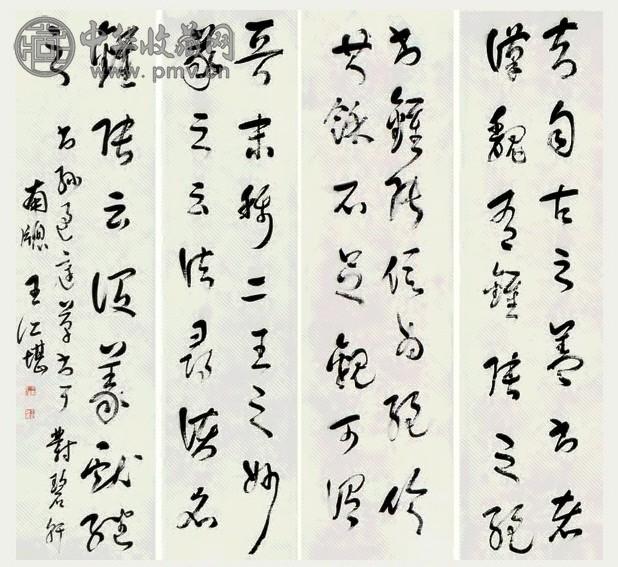 中华收藏网
www.pmv.cn
夫自古之善書者
漢魏有鍾張之絕
書鍾張信為絕倫
其餘不足觀可謂
晉末稱二王之妙
羲之云頃尋諸名
鍾張云沒羲獻繼
之
書孫過庭草書于對碧軒
南牕 王江堪